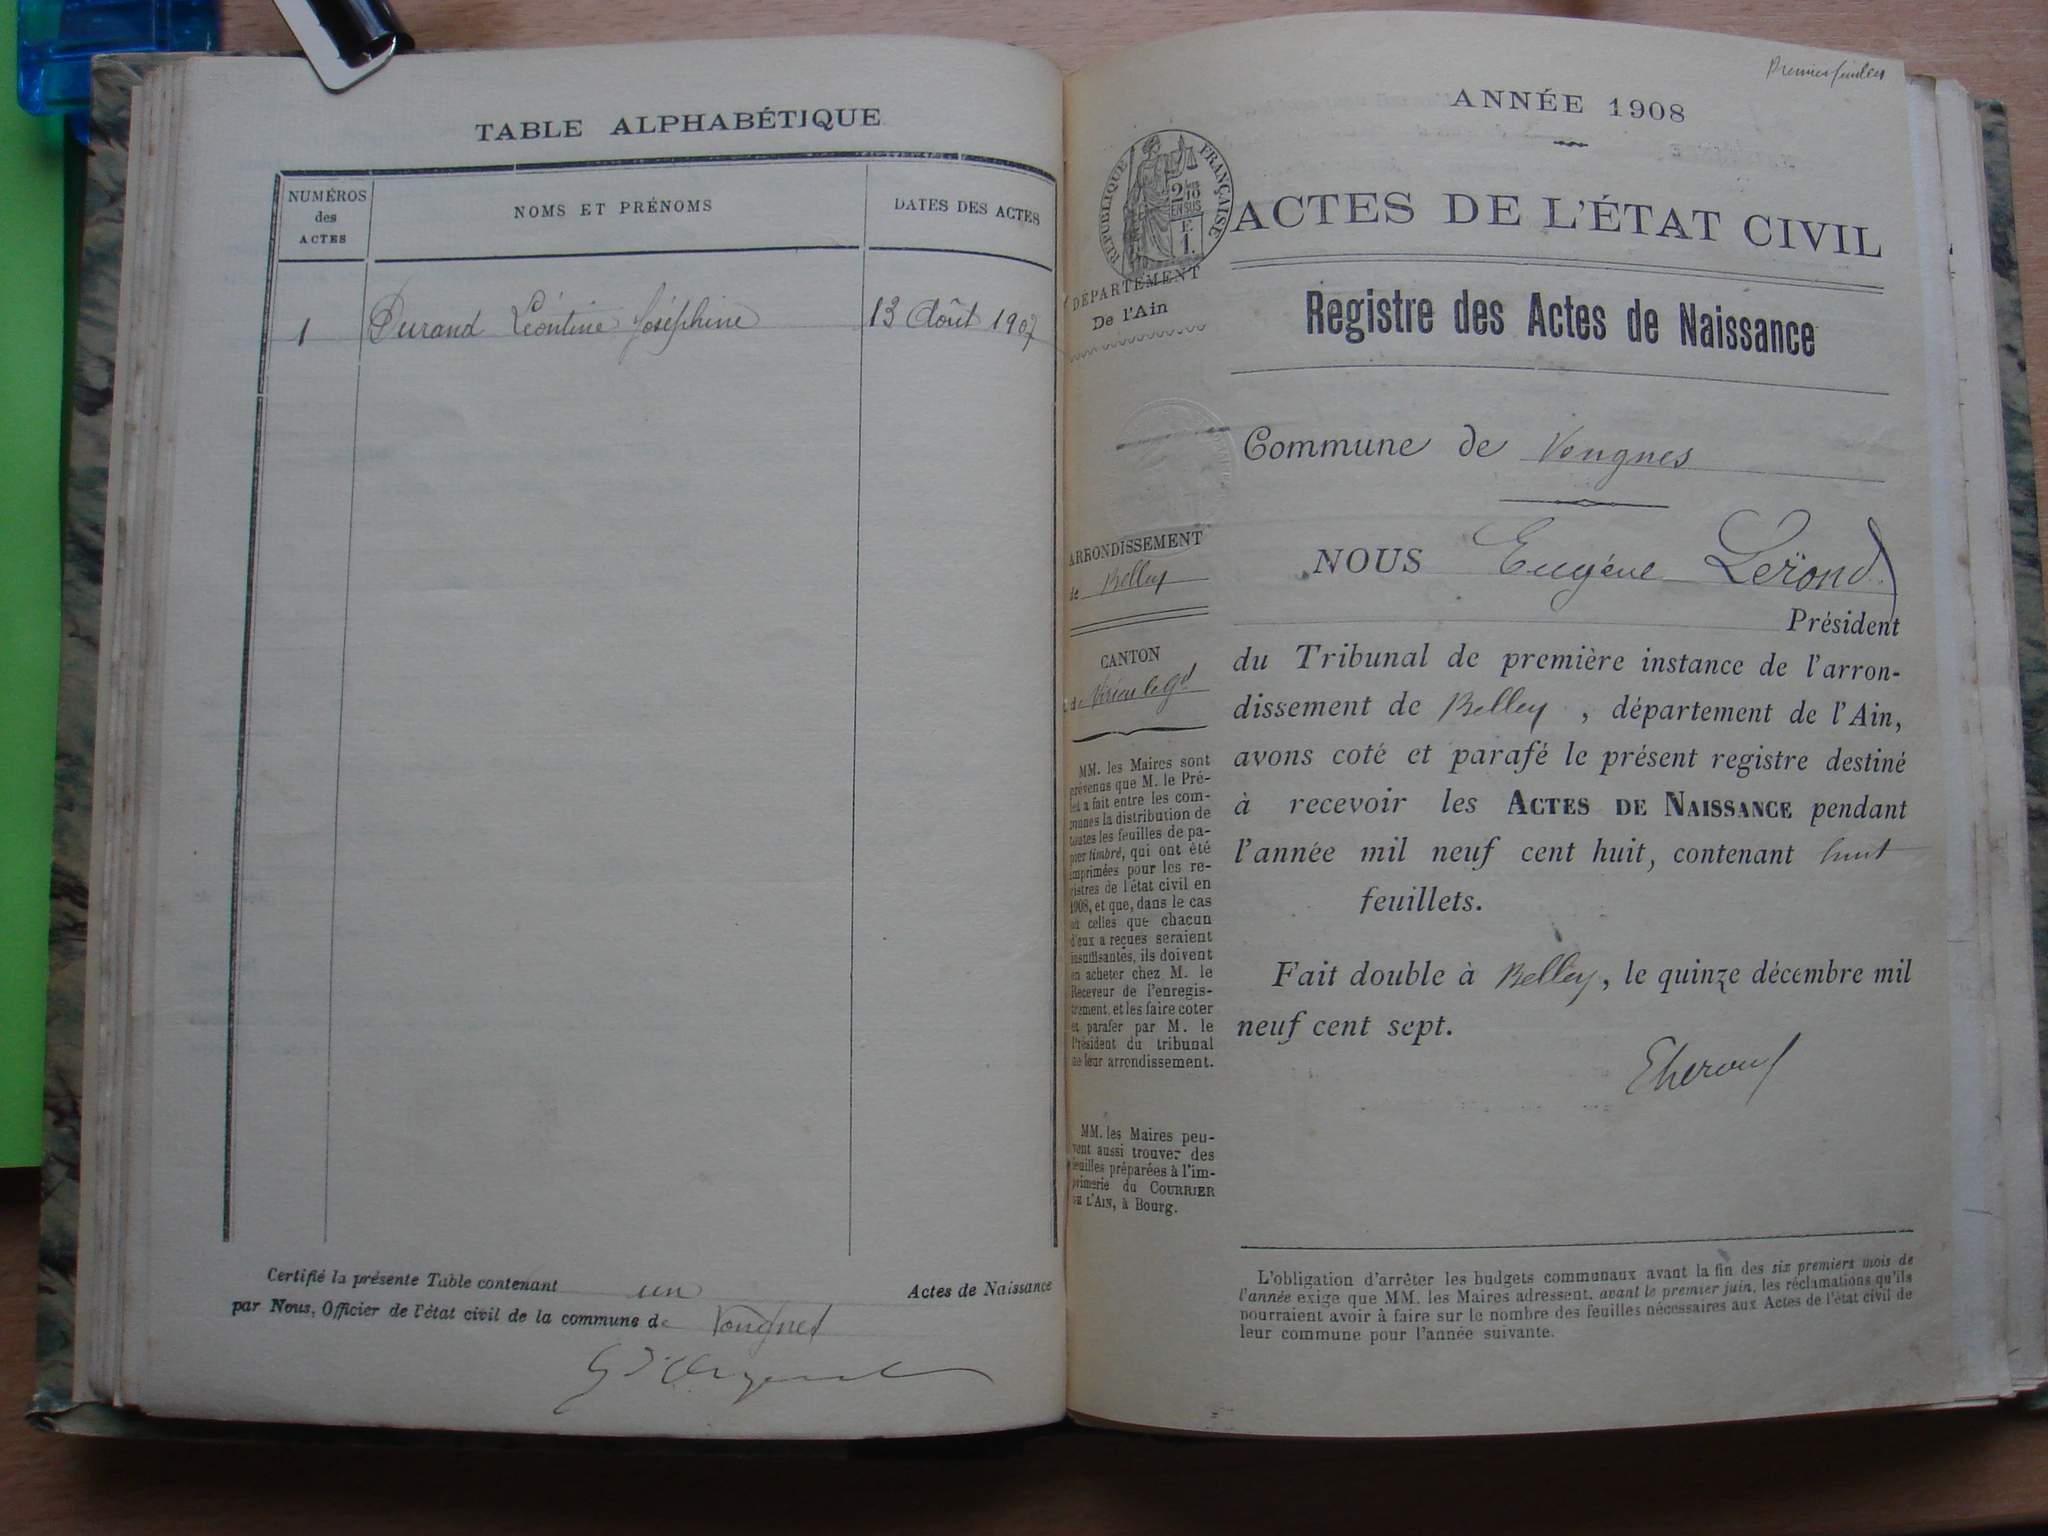 TABLE ALPHABÉTIQUE
NUMÉROS des ACTES
NOMS ET PRÉNOMS
DATES DES ACTES
1 Durand Léontine Joséphine 13 Août 1907
Certifié la présente Table contenant un Actes de Naissance
par Nous, Officier de l'état civil de la commune de Vongnes
Premier feuillet
ANNÉE 1908
RÉPUBLIQUE FRANÇAISE
2/10
EN SUS
ACTES DE L'ÉTAT CIVIL
DÉPARTEMENT
De l'Ain
Registre des Actes de Naissance
Commune de Vongnes
ARRONDISSEMENT
de Belley
NOUS Eugène Lerond
Président
CANTON
de Virieu le Gd
du Tribunal de première instance de l'arron-
dissement de Belley, département de l'Ain,
avons coté et parafé le présent registre destiné
à recevoir les ACTES DE NAISSANCE pendant
l'année mil neuf cent huit, contenant huit
feuillets.
Fait double à Belley, le quinze décembre mil
neuf cent sept.
MM. les Maires sont
prévenus que M. le Pré-
fet a fait entre les com-
munes la distribution de
toutes les feuilles de pa-
pier timbré, qui ont été
imprimées pour les re-
gistres de l'état civil en
1908, et que, dans le cas
où celles que chacun
d'eux a reçues seraient
insuffisantes, ils doivent
en acheter chez M. le
Receveur de l'enregis-
trement, et les faire coter
et parafer par M. le
Président du tribunal
de leur arrondissement.
MM. les Maires peu-
vent aussi trouver des
feuilles préparées à l'im-
primerie du COURRIER
DE L'AIN, à Bourg.
L'obligation d'arrêter les budgets communaux avant la fin des six premiers mois de
l'année exige que MM. les Maires adressent, avant le premier juin, les réclamations qu'ils
pourraient avoir à faire sur le nombre des feuilles nécessaires aux Actes de l'état civil de
leur commune pour l'année suivante.